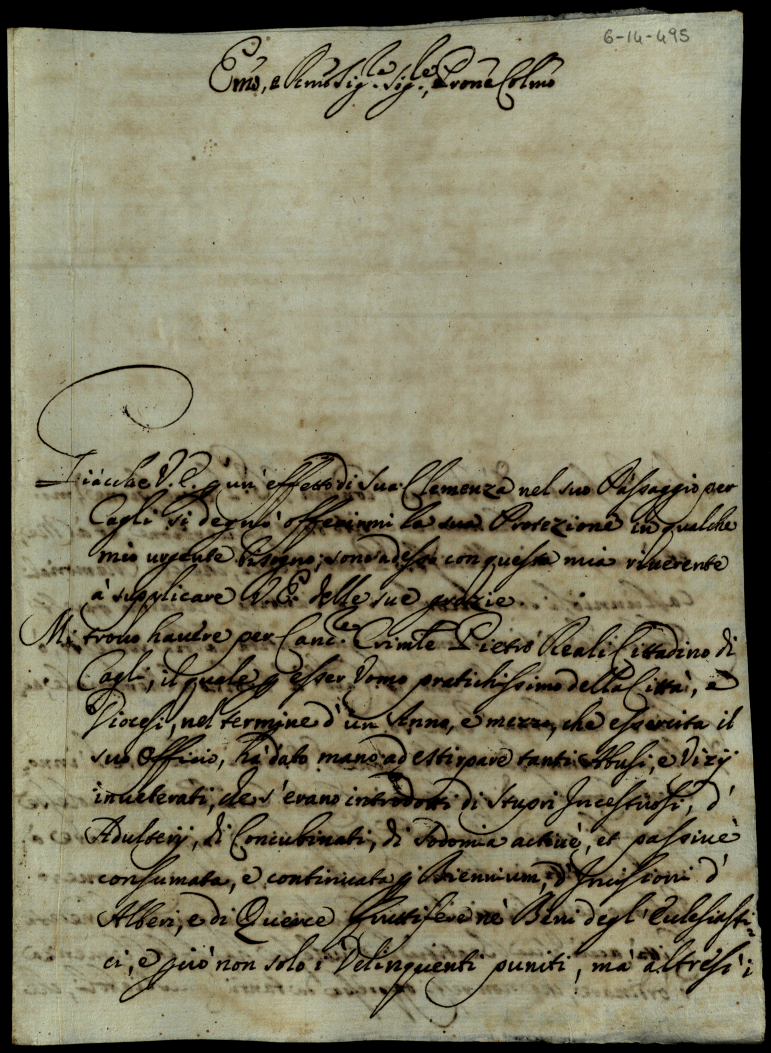 6-14-495
Em̃o, e Rm̃o Sig.re Sig.re, Pron̄e Colm̃o
Giàcche V.E. p un' effetto di sua Clemenza nel suo Passaggio per
Cagli si degnò offerirmi la sua Protezione in qualche
mio urgente bisogno; sono adesso con questa mia riverente
à supplicare V.E. delle sue grazie.
Mi trovo havere per Canc.re Crim̄le Pietro Reali Cittadino di
Cagli, il quale p esser Vomo pratichissimo della Città, e
Diocesi, nel termine d'un Anno, e mezzo, che essercita il
suo Officio, hà dato mano ad estirpare tanti Abusi, e Vizij
inveterati, che s'erano introdotti di Stupri Incestuosi, d'
Adulterij, di Concubinati, di Sodomia activè, et passivè
consumata, e continuata p Biennium, d'Incissioni d'
Alberi, e di Querce fruttifere nè Beni degl'Eclesiasti=
ci, e più non solo i Delinquenti puniti, mà altresì i